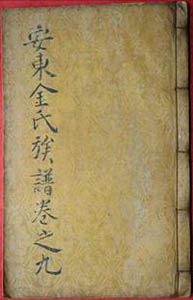 安東金氏族譜卷之九